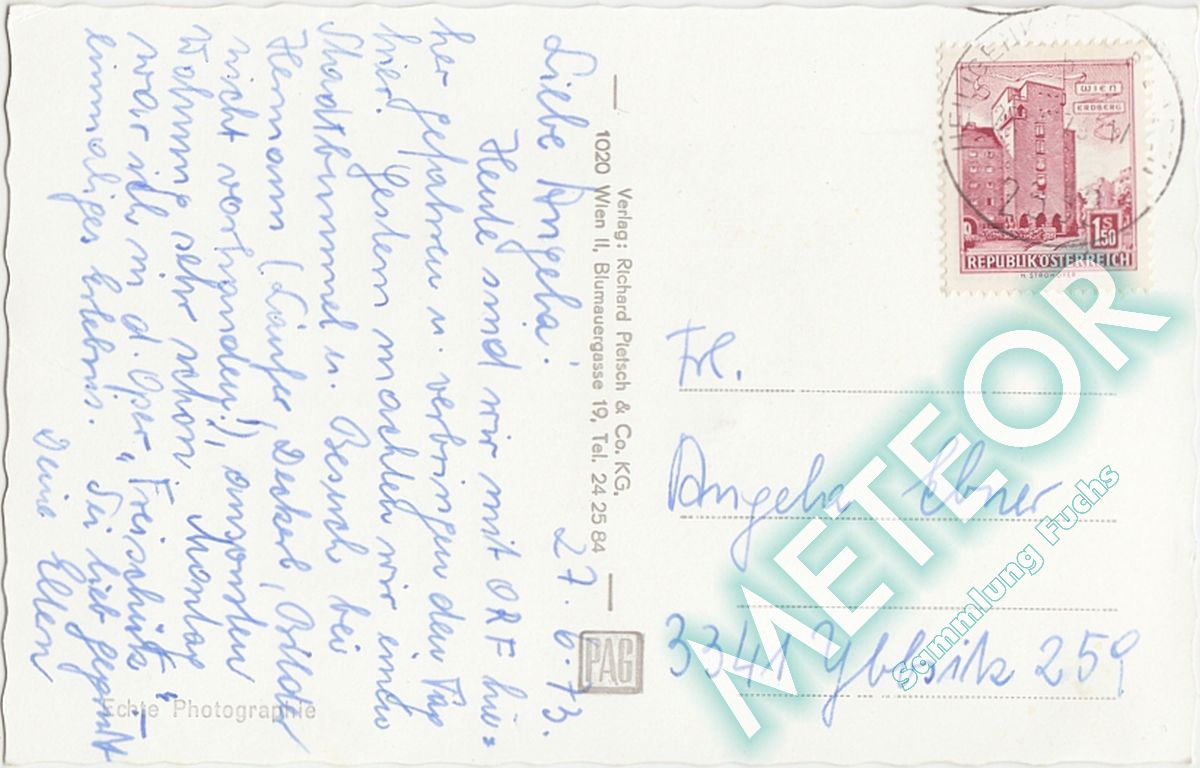 Liebe Angela! 27.6.73.
Heute sind wir mit ORF hie=
her gefahren u. verbringen den Tag
hier. Gestern machten wir einen
Stadtbummel u. Besuch bei
Hermann (Läufer, Deckerl, Bilder
nicht vorhanden!), ansonsten
Wohnung sehr schön. Montag
war ich in d. Oper „Freischütz“ –
einmaliges Erlebnis. Sei lieb gegrüßt
Deine Ellen
Verlag: Richard Pietsch & Co. KG.
1020 Wien II, Blumauergasse 19, Tel. 24 25 84
PAG
Echte Photographie
WIEN
ERDBERG
1 S 50
REPUBLIK ÖSTERREICH
H. STROHOFER
Frl.
Angela Ebner
3341 Ybbsitz 259
METEOR
Sammlung Fuchs